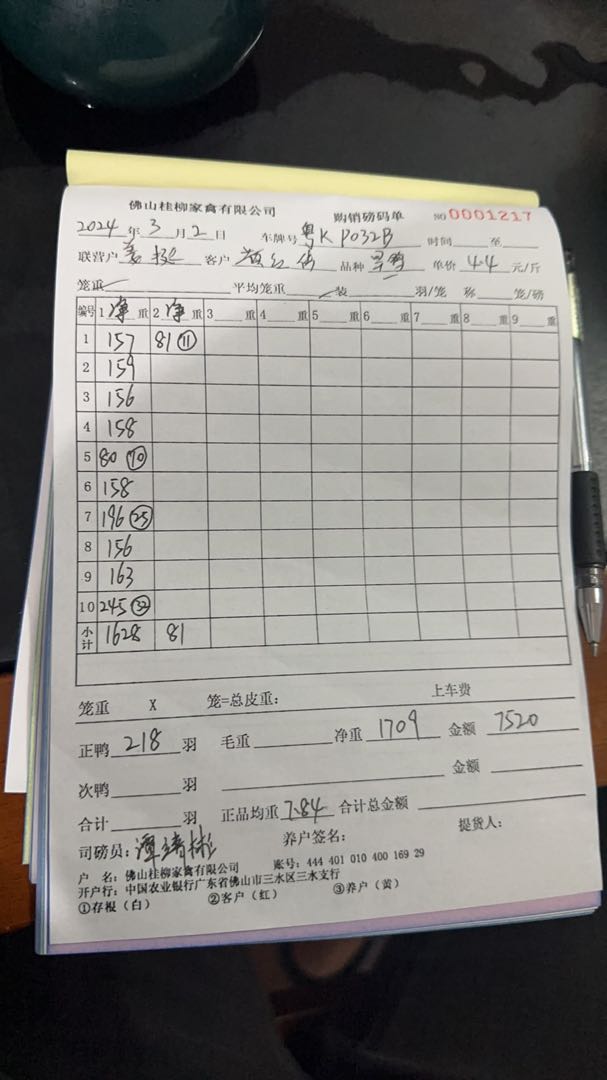 佛山桂柳家禽有限公司 购销磅码单 NO 0001217
2024 年 3 月 2 日 车牌号 粤K P032B 时间 至
联营户 客户 品种 单价 4.4 元/斤
笼重 平均笼重 装 羽/笼 称 笼/磅
编号 1 净 重 2 净 重 3 重 4 重 5 重 6 重 7 重 8 重 9 重
1 157 81 ⑪
2 159
3 156
4 158
5 80 ⑩
6 158
7 196 ㉕
8 156
9 163
10 245 ㉜
小计 1628 81
笼重 X 笼=总皮重: 上车费
正鸭 218 羽 毛重 净重 1709 金额 7520
次鸭 羽 金额
合计 羽 正品均重 7.84 合计总金额
司磅员: 养户签名: 提货人:
户 名: 佛山桂柳家禽有限公司 账号: 444 401 010 400 169 29
开户行: 中国农业银行广东省佛山市三水区三水支行
①存根(白) ②客户(红) ③养户(黄)